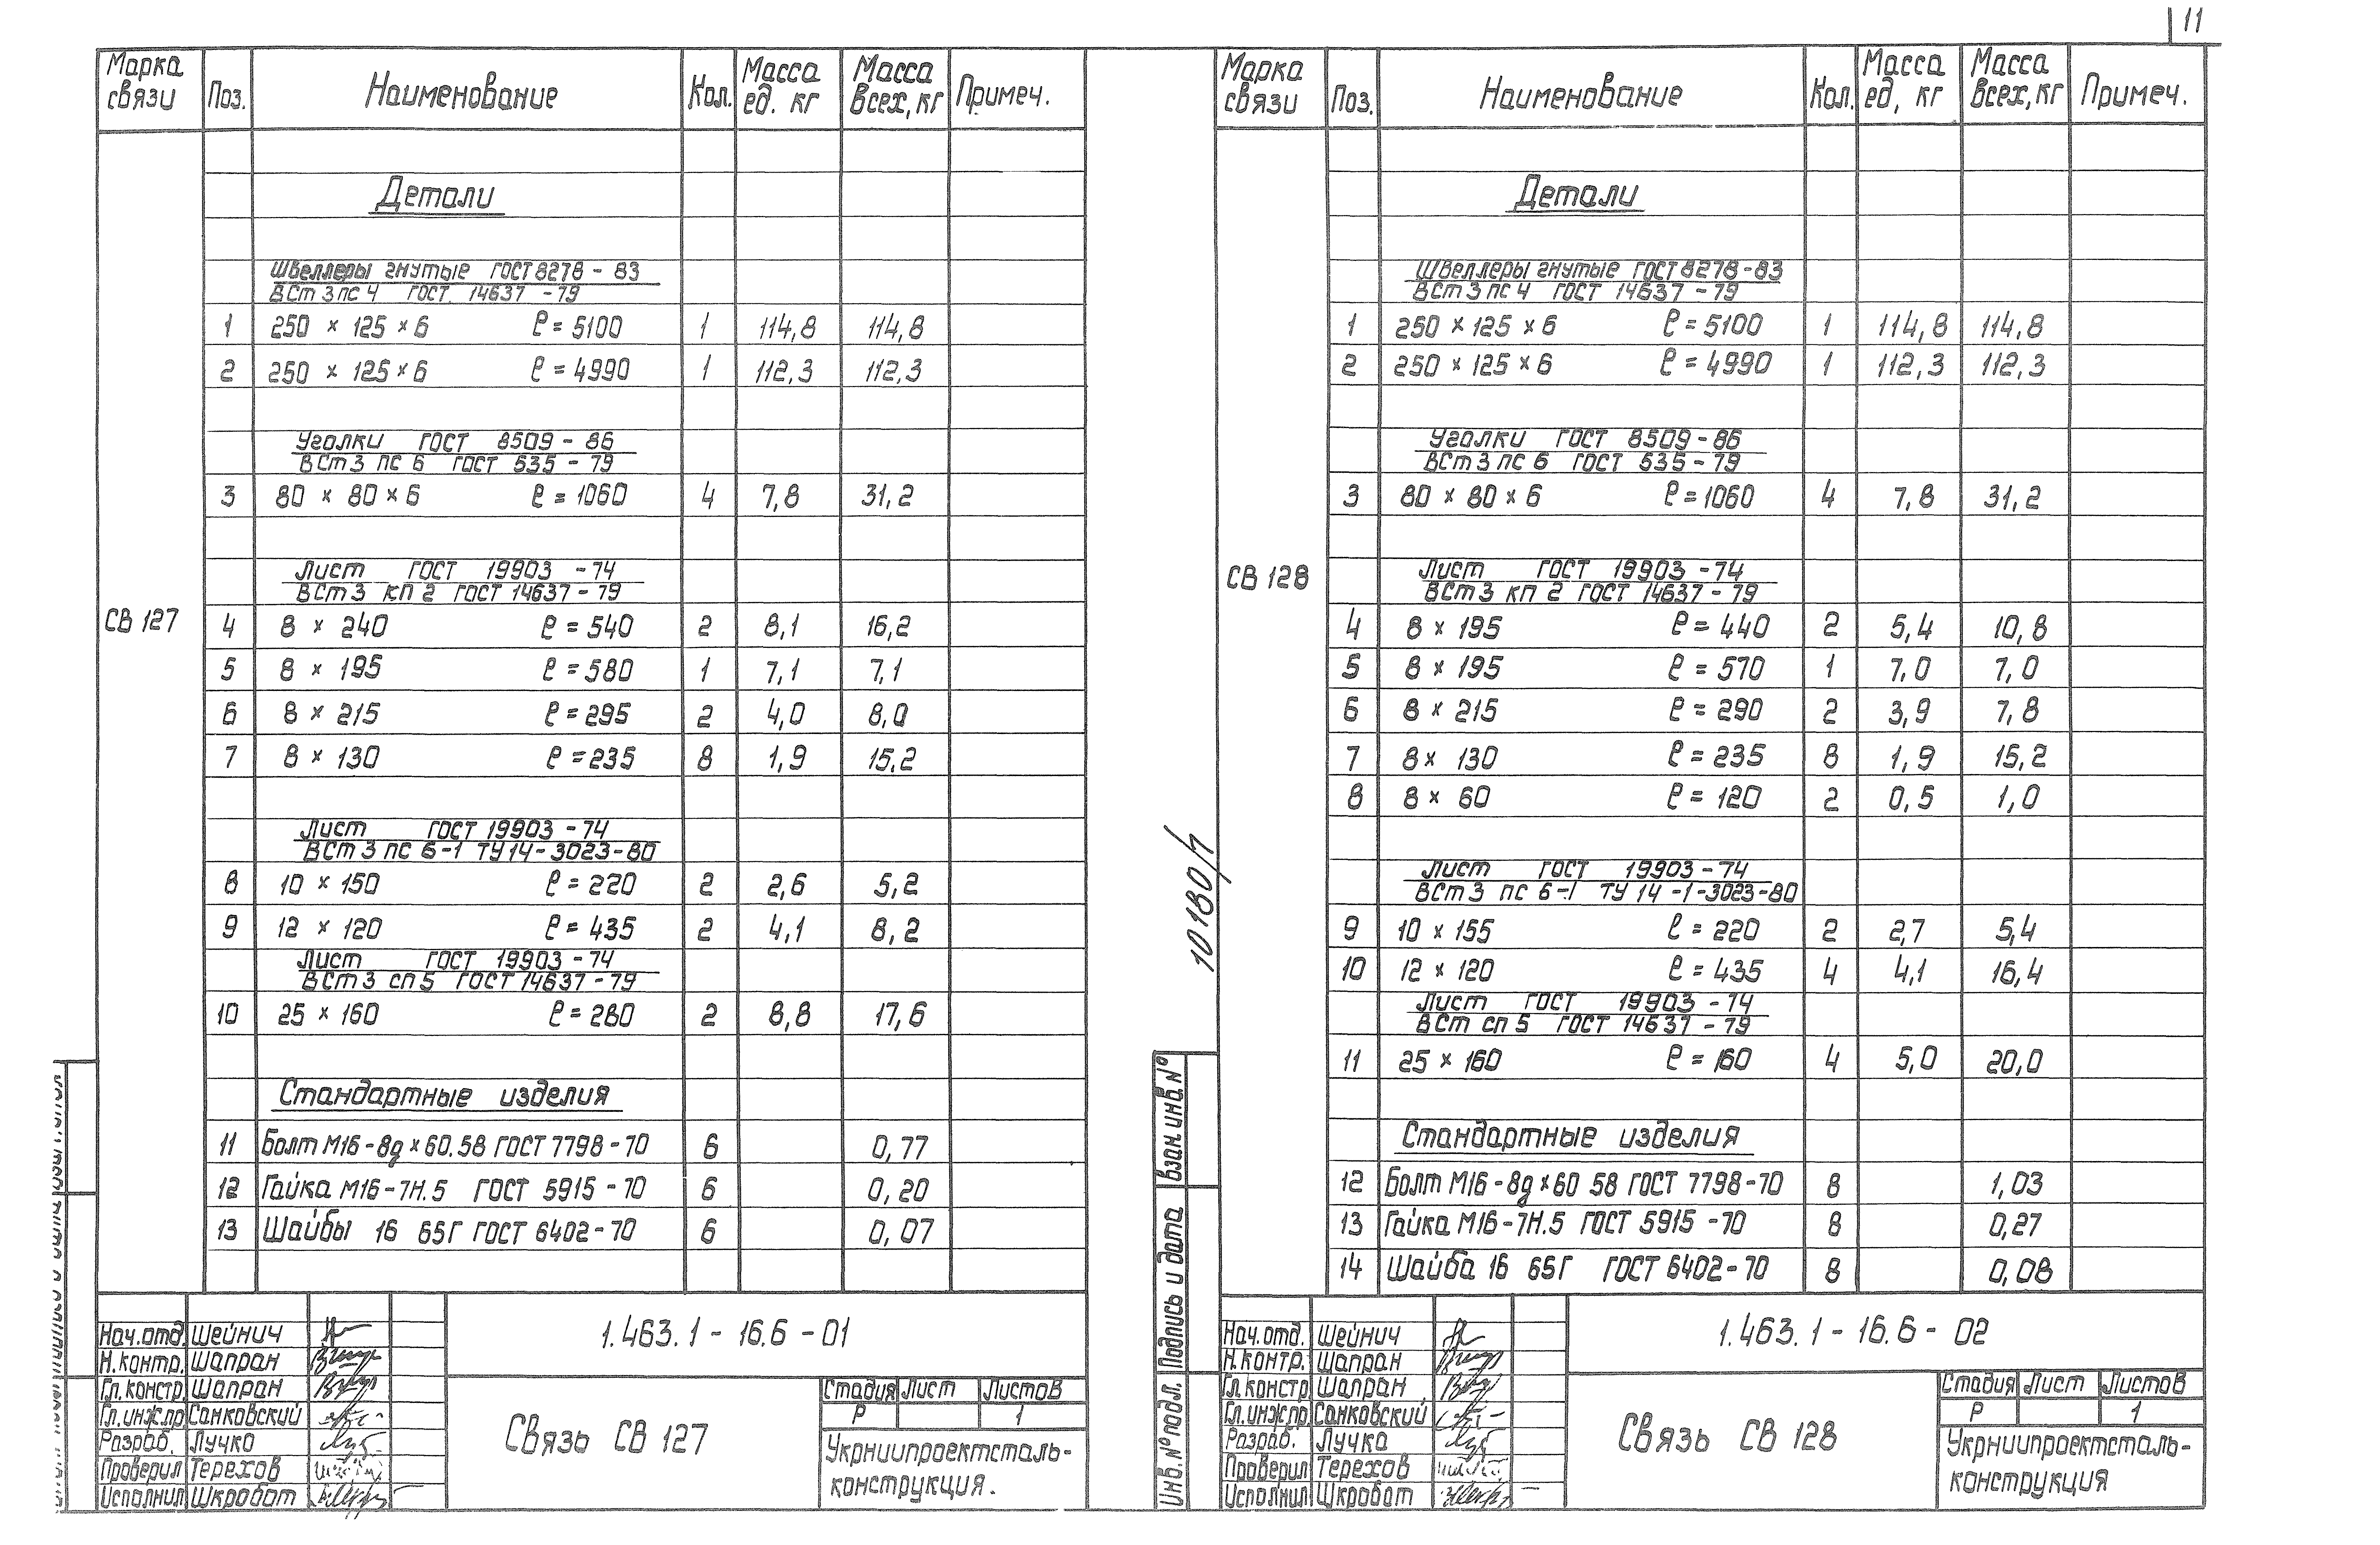 11
Марка связи Поз. Наименование Кол. Масса ед. кг Масса всех, кг Примеч.
СВ 127
Детали
Швеллеры гнутые ГОСТ 8278 - 83
ВСт 3 пс 4 ГОСТ. 14637 - 79
1 250 × 125 × 6 ℓ = 5100 1 114,8 114,8
2 250 × 125 × 6 ℓ = 4990 1 112,3 112,3
Уголки ГОСТ 8509 - 86
ВСт 3 пс 6 ГОСТ 535 - 79
3 80 × 80 × 6 ℓ = 1060 4 7,8 31,2
Лист ГОСТ 19903 - 74
ВСт 3 кп 2 ГОСТ 14637 - 79
4 8 × 240 ℓ = 540 2 8,1 16,2
5 8 × 195 ℓ = 580 1 7,1 7,1
6 8 × 215 ℓ = 295 2 4,0 8,0
7 8 × 130 ℓ = 235 8 1,9 15.2
Лист ГОСТ 19903 - 74
ВСт 3 пс 6-1 ТУ 14 - 3023-80
8 10 × 150 ℓ = 220 2 2,6 5,2
9 12 × 120 ℓ = 435 2 4,1 8,2
Лист ГОСТ 19903 - 74
ВСт 3 сп 5 ГОСТ 14637 - 79
10 25 × 160 ℓ = 280 2 8,8 17,6
Стандартные изделия
11 Болт М16 - 8g × 60.58 ГОСТ 7798 - 70 6 0,77
12 Гайка М16 - 7Н.5 ГОСТ 5915 - 70 6 0,20
13 Шайбы 16 65Г ГОСТ 6402 - 70 6 0,07
1.463.1 - 16.6 - 01
Нач.отд. Шейнич
Н.контр. Шапран
Гл.констр. Шапран
Гл.инж.пр Санковский
Разраб. Лучко
Проверил Терехов
Исполнил Шкробот
Связь СВ 127
Стадия Лист Листов
Р 1
Укрниипроектсталь-
конструкция.
10180/7
Взам.инв.№
Подпись и дата
Инв.№ подл.
Марка связи Поз. Наименование Кол. Масса ед, кг Масса всех, кг Примеч.
СВ 128
Детали
Швеллеры гнутые ГОСТ 8278 - 83
ВСт 3 пс 4 ГОСТ 14637 - 79
1 250 × 125 × 6 ℓ = 5100 1 114,8 114,8
2 250 × 125 × 6 ℓ = 4990 1 112,3 112,3
Уголки ГОСТ 8509 - 86
ВСт 3 пс 6 ГОСТ 535 - 79
3 80 × 80 × 6 ℓ = 1060 4 7,8 31,2
Лист ГОСТ 19903 - 74
ВСт 3 кп 2 ГОСТ 14637 - 79
4 8 × 195 ℓ = 440 2 5,4 10,8
5 8 × 195 ℓ = 570 1 7,0 7,0
6 8 × 215 ℓ = 290 2 3,9 7,8
7 8 × 130 ℓ = 235 8 1,9 15,2
8 8 × 60 ℓ = 120 2 0,5 1,0
Лист ГОСТ 19903 - 74
ВСт 3 пс 6-1 ТУ 14 - 1 - 3023 - 80
9 10 × 155 ℓ = 220 2 2,7 5,4
10 12 × 120 ℓ = 435 4 4,1 16,4
Лист ГОСТ 19903 - 74
ВСт сп 5 ГОСТ 14637 - 79
11 25 × 160 ℓ = 160 4 5,0 20,0
Стандартные изделия
12 Болт М16 - 8g × 60 58 ГОСТ 7798 - 70 8 1,03
13 Гайка М16 - 7Н.5 ГОСТ 5915 - 70 8 0,27
14 Шайба 16 65Г ГОСТ 6402 - 70 8 0,08
1.463.1 - 16.6 - 02
Нач.отд. Шейнич
Н.контр. Шапран
Гл.констр Шапран
Гл.инж.пр. Санковский
Разраб. Лучко
Проверил Терехов
Исполнил Шкробот
Связь СВ 128
Стадия Лист Листов
Р 1
Укрниипроектсталь-
конструкция